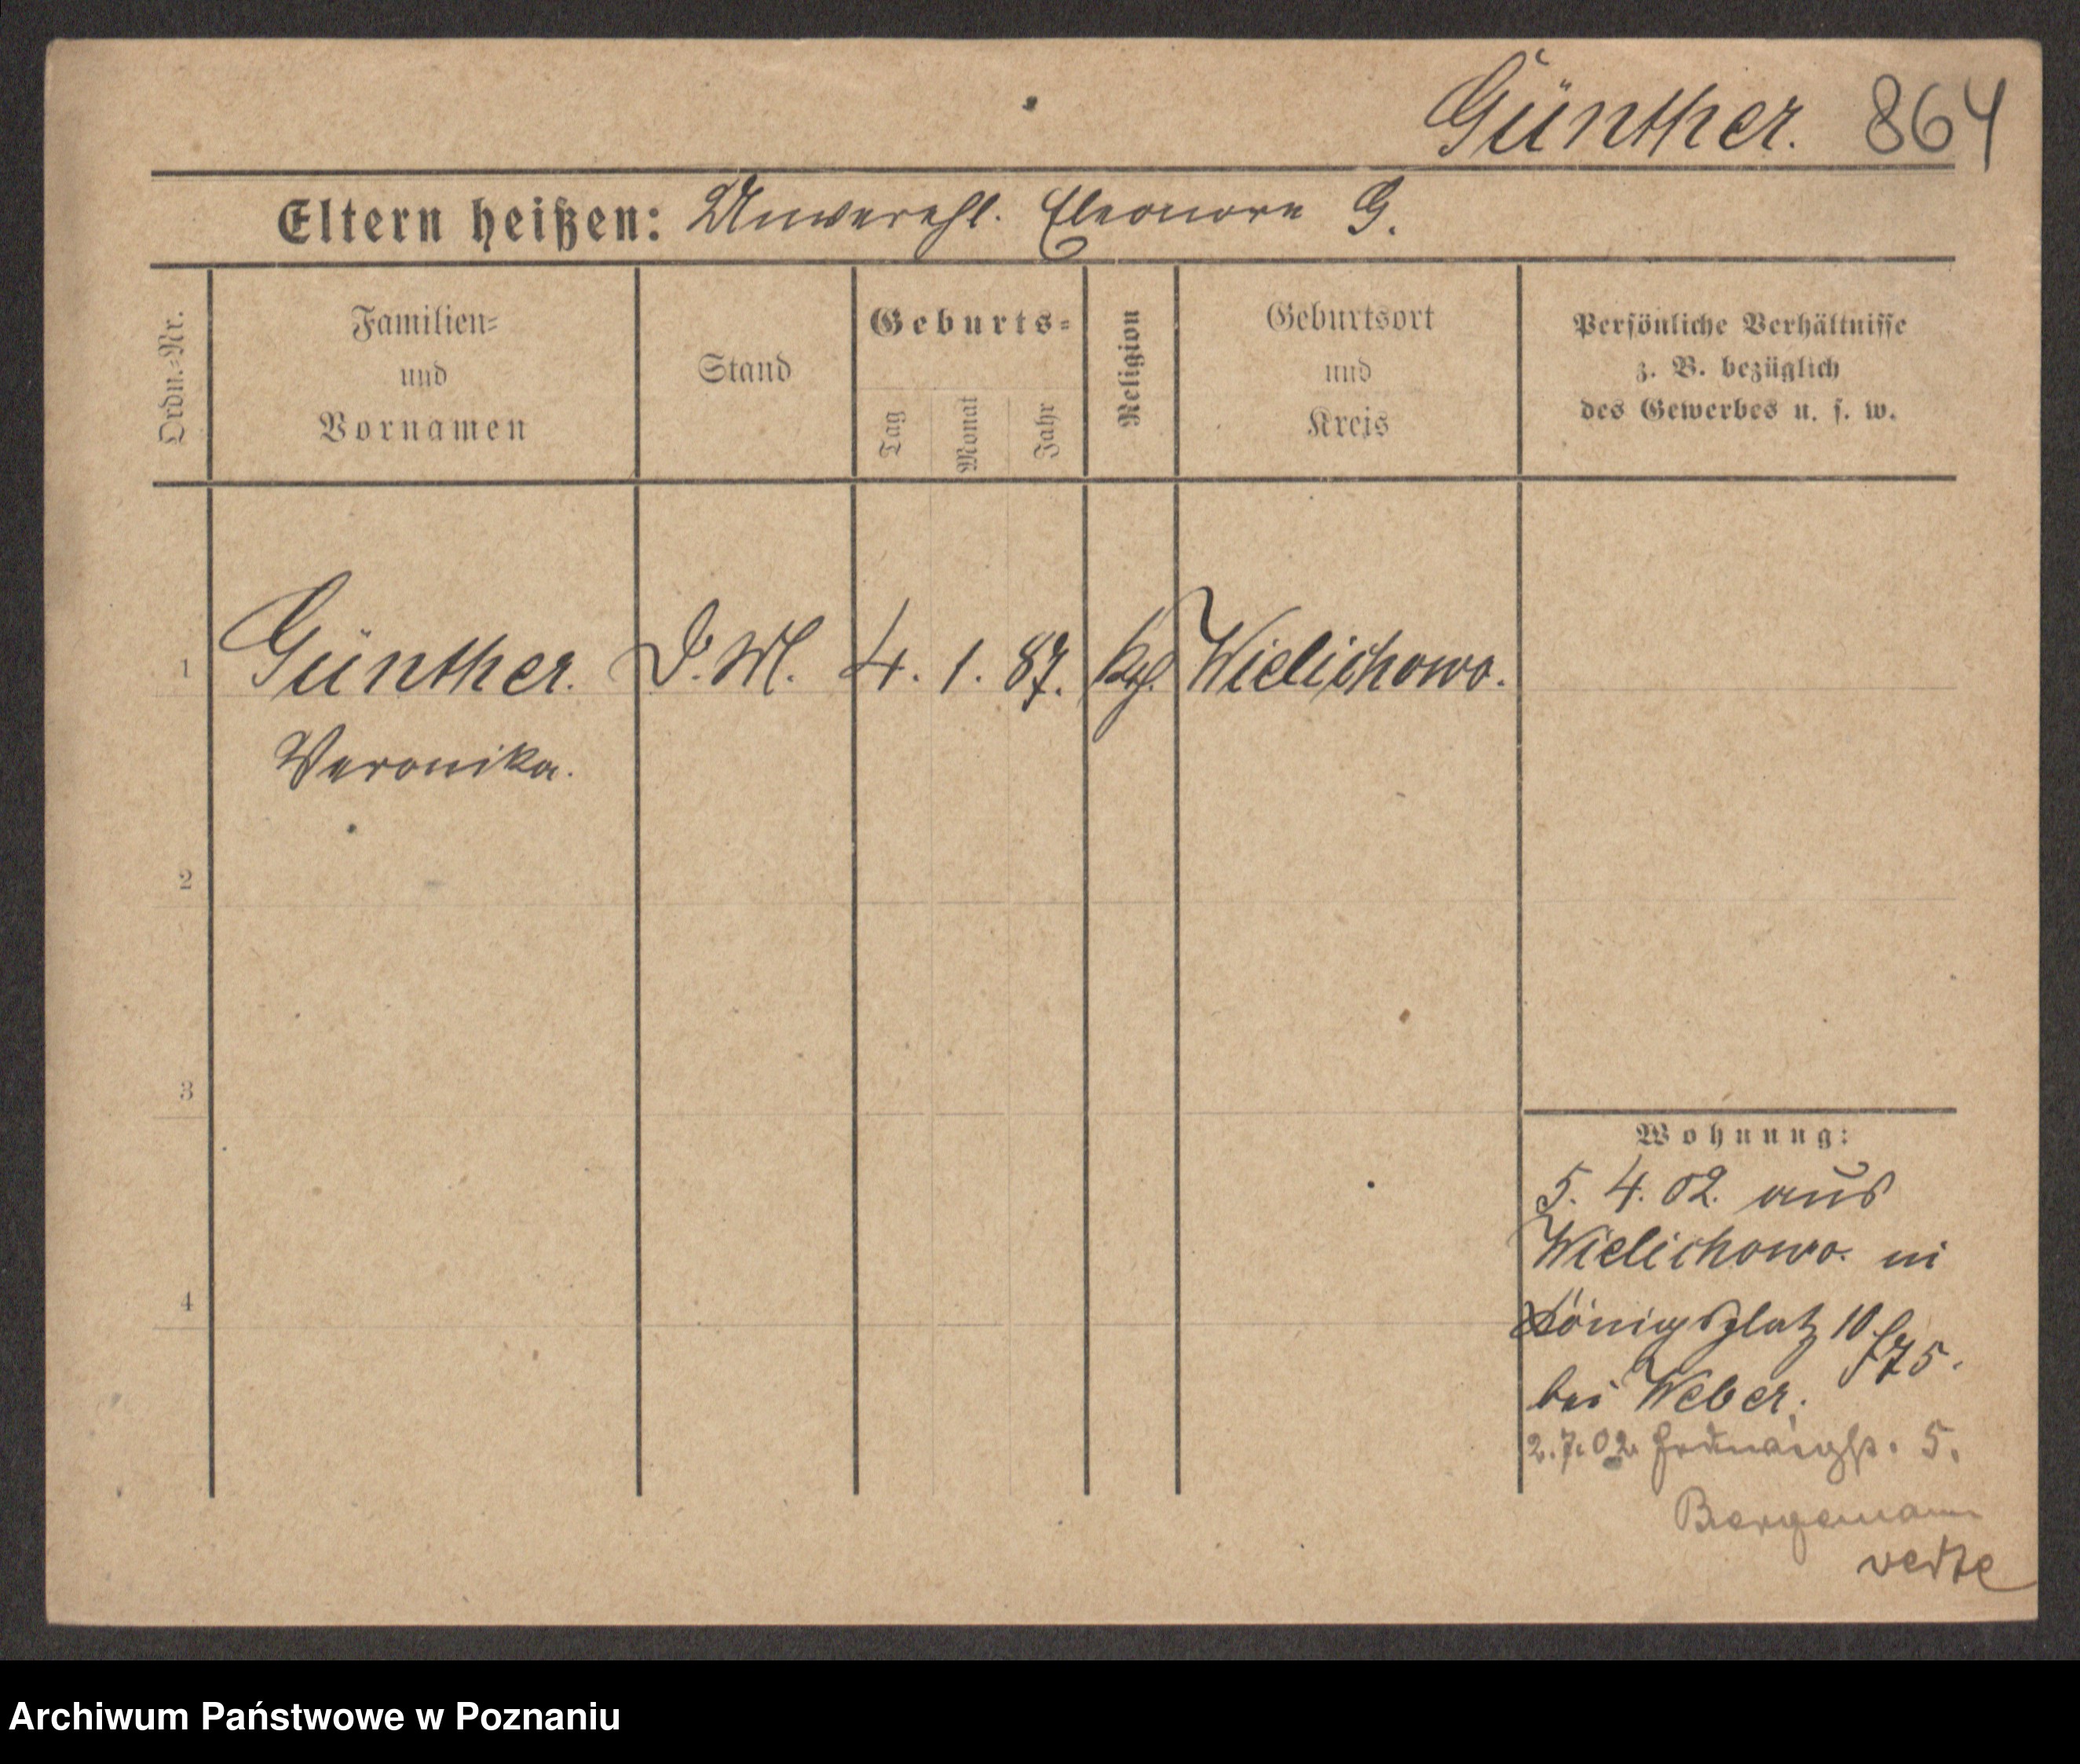 Günther. 864
Eltern heißen: Unverehl. Eleonore G.
Ordn.-Nr.
Familien-
und
Vornamen
Stand
Geburts-
Tag
Monat
Jahr
Religion
Geburtsort
und
Kreis
Persönliche Verhältnisse
z. B. bezüglich
des Gewerbes u. s. w.
1 Günther. D. M. 4. 1. 87. kath. Wielichowo.
Veronika.
2
3
4
Wohnung:
5. 4. 02. aus
Wielichowo. in
Königsplatz 10
f75.
bei Weber.
2. 7. 02. 5.
Bergemann
verte
Archiwum Państwowe w Poznaniu